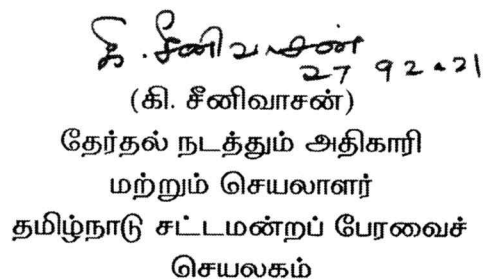 கி. சீனிவாசன்
27 92.21
(கி. சீனிவாசன்)
தேர்தல் நடத்தும் அதிகாரி
மற்றும் செயலாளர்
தமிழ்நாடு சட்டமன்றப் பேரவைச்
செயலகம்